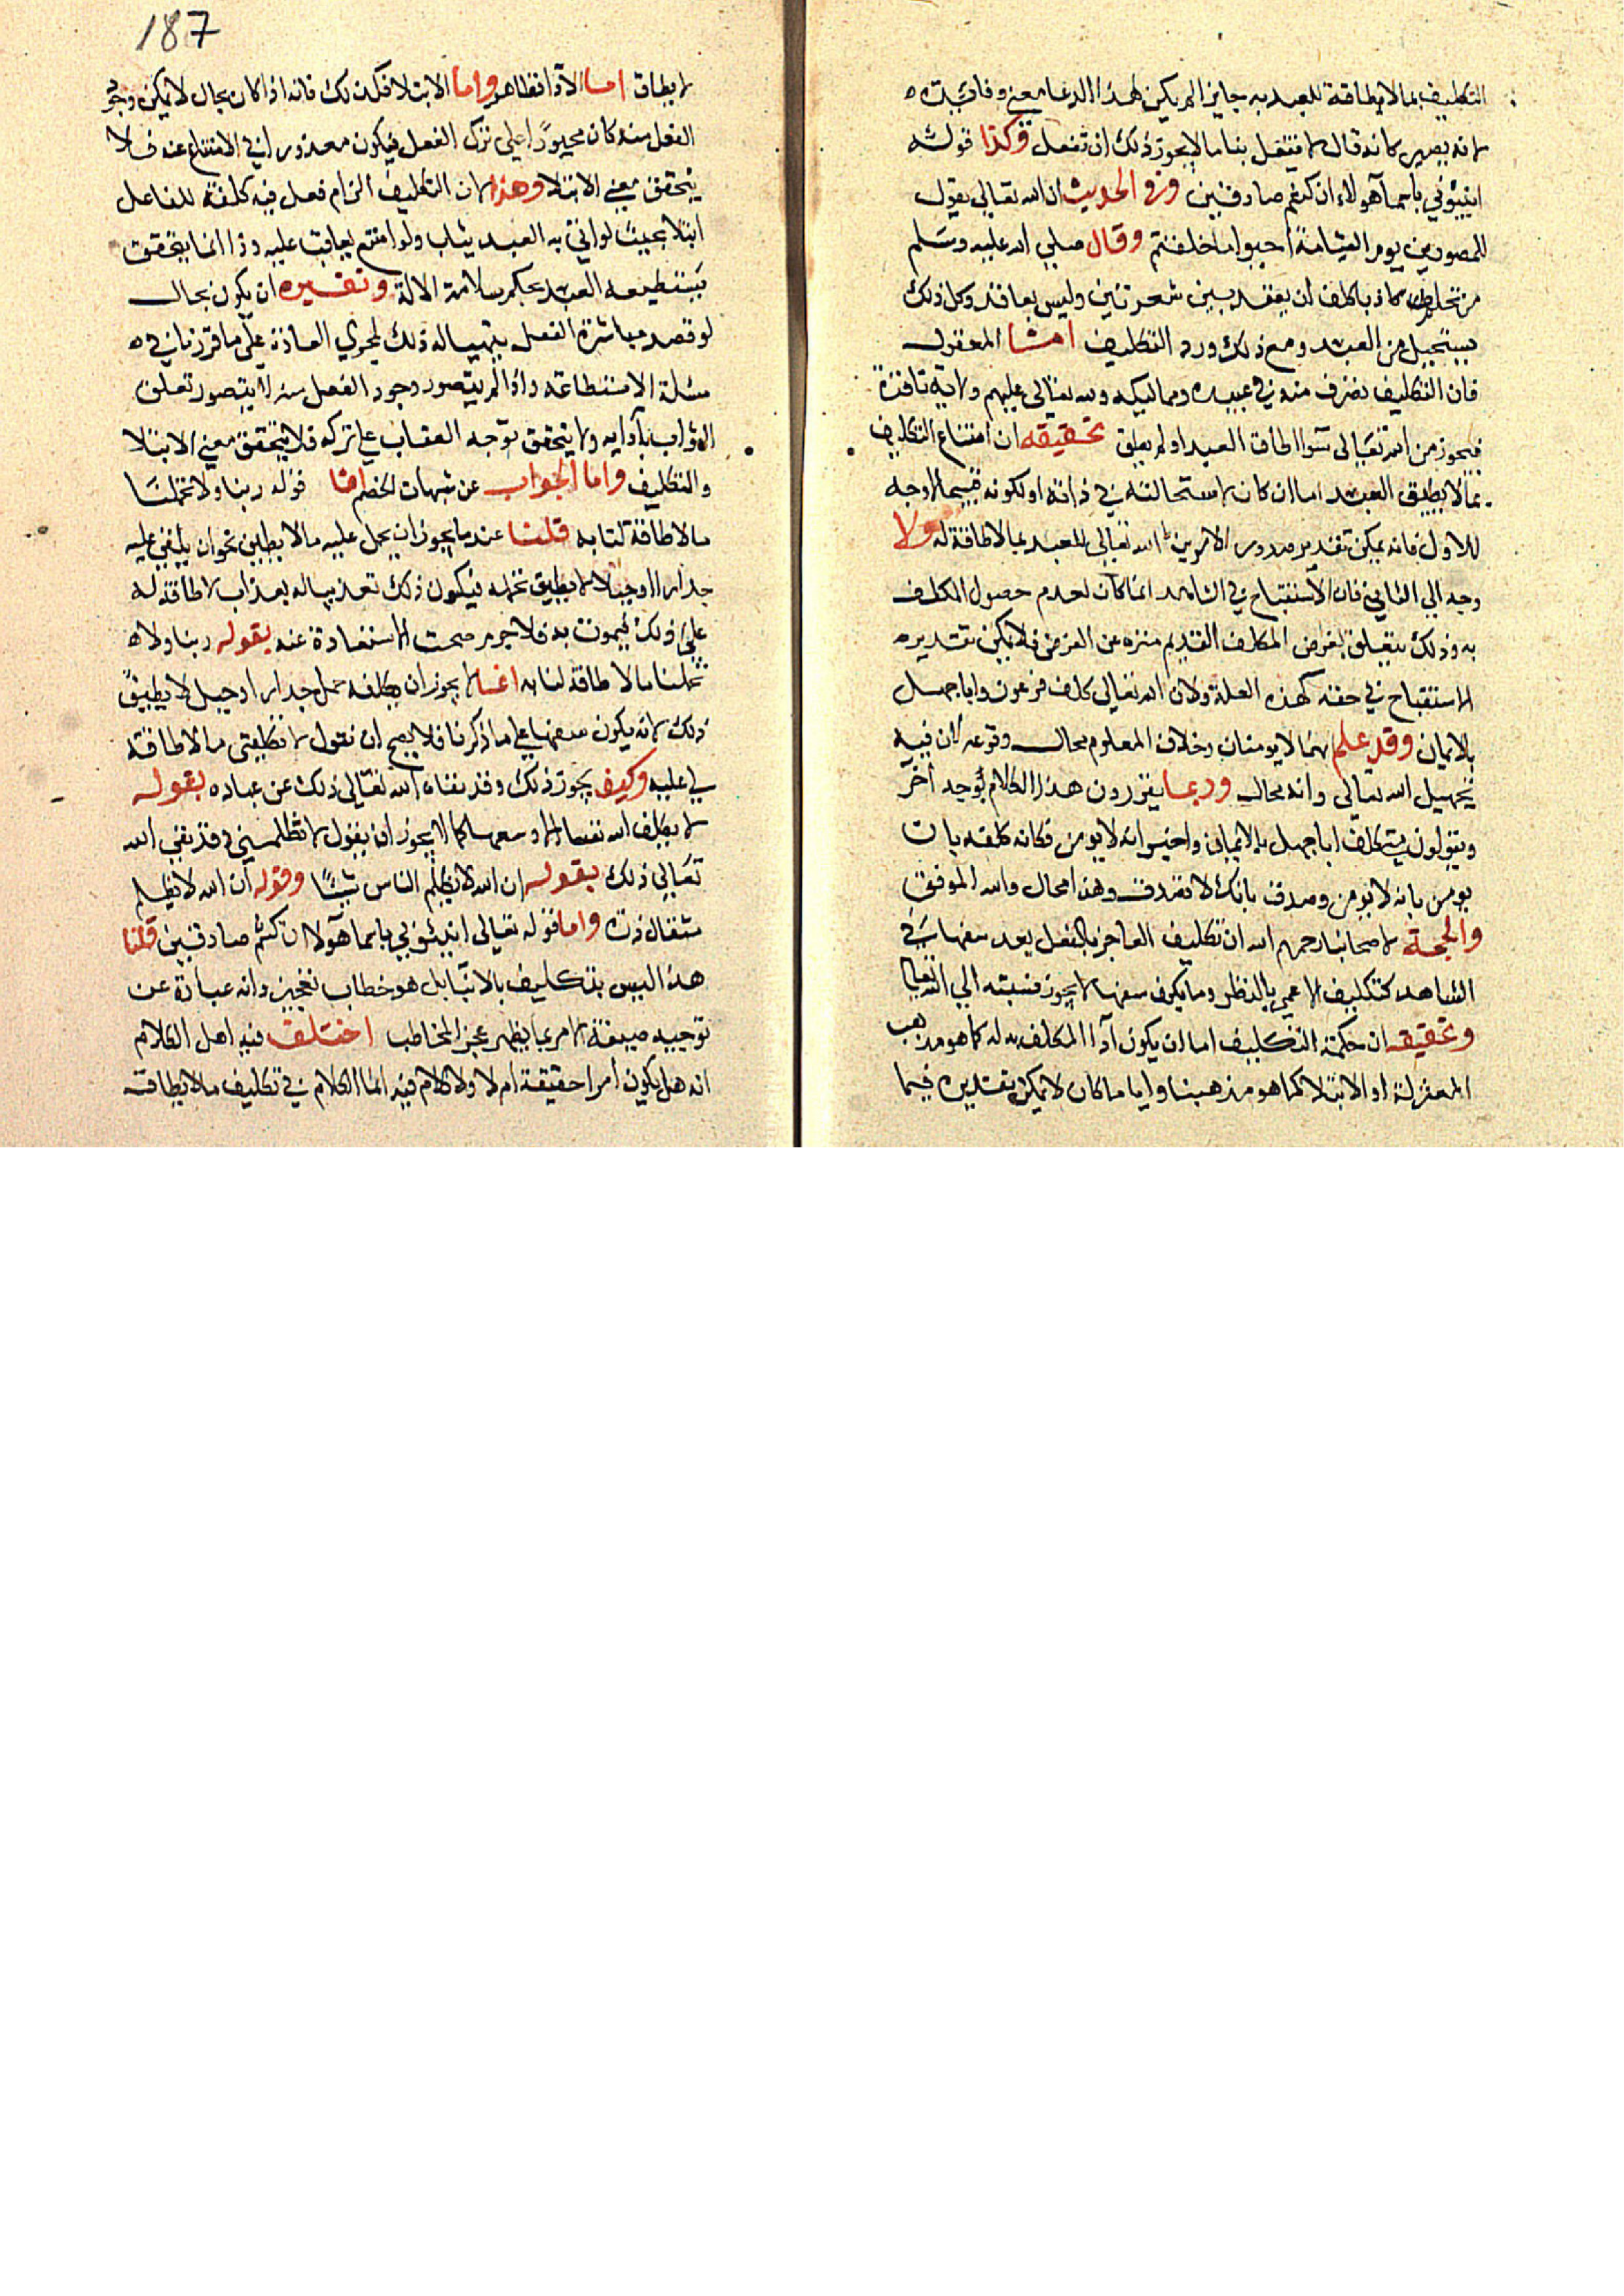 التكليف بما لا طاقة للعبد به جايز الم يكن لهذا الدعا معني وفائدة
لانه يصير كانه قال لا تفعل بنا ما لا يجوز ذلك ان تفعل وكذا قوله
انبئوني باسما هولاء ان كنتم صادقين وفي الحديث ان الله تعالى يقول
للمصورين يوم القيامة احيوا ما خلقتم وقال صلي الله عليه وسلم
من تحلم كاذبا كلف ان يعقد بين شعرتين وليس بعاقد وكل ذلك
يستحيل من العبد ومع ذلك ورد التكليف امّا المعقول
فان التكليف تصرف منه في عبيده ومماليكه ولله تعالى عليهم ولاية نافذة
فيجوز من الله تعالى سوا اطاق العبد او لم يطق تحقيقه ان امتناع التكليف
بما لا يطيق العبد اما ان كان لاستحالته في ذاته او لكونه قبيحا لا وجه
للاول فانه يمكن تقدير صدور الامر من الله تعالى للعبد بما لا طاقة له ولا
وجه الي الثاني فان الاستقباح في الشاهد انما كان لعدم حصول المكلف
به وذلك يتعلق بغرض المكلف القديم منزه عن الغرض فلا يمكن تقديره
الاستقباح في حقه لهذه العلة ولان الله تعالى كلف فرعون وابا جهل
بالايمان وقد علم انهما لا يومنان وخلاف المعلوم محال وقوعه لان فيه
تجهيل الله تعالى وانه محال وربما يقررون هذا الكلام بوجه اخر
ويقولون كلف ابا جهل بالايمان واخبر انه لا يومن فكانه كلفه بان
يومن بانه لا يومن وصدق بانك لا تصدق وهذا محال والله الموفق
والحجة لاصحابنا رحمهم الله ان تكليف العاجز بالفعل يعد سفها في
الشاهد كتكليف الاعمي بالنظر وما يكون سفها لا يجوز نسبته الي الله تعالى
وتحقيقه ان حكمة التكليف اما ان يكون ادا المكلف به له كما هو مذهب
المعتزلة او الابتلا كما هو مذهبنا وايا ما كان لا يمكن تقديره فيما
187
لا يطاق اما الادا فظاهر واما الابتلا فكذلك فانه اذا كان بحال لا يمكن وجود
الفعل منه كان مجبورًا على ترك الفعل فيكون معذورا في الامتناع عنه فلا
يتحقق معني الابتلا وهذا لان التكليف الزام فعل فيه كلفة للفاعل
ابتلا بحيث لو اتي به العبد يثاب ولو امتنع يعاقب عليه وذا انما يتحقق
فيما يستطيعه العبد بحكم سلامة الالة وتفسيره ان يكون بحال
لو قصد مباشرة الفعل يتهيا له ذلك لمجري العادة على ما قررنا في
مسئلة الاستطاعة واذا لم يتصور وجود الفعل منه لا يتصور تعلق
الثواب بادايه ولا يتحقق توجه العقاب على تركه فلا يتحقق معني الابتلا
والتكليف واما الجواب عن شبهات الخصم امّا قوله ربنا ولا تحملنا
ما لا طاقة لنا به قلنا عندنا يجوز ان يحمل عليه ما لا يطيق نحو ان يلقي عليه
جدارا او جبلا لا يطيق تحمله فيكون ذلك تعذيبا له بعذاب لا طاقة له
على ذلك فيموت به فلا جرم صحت الاستعاذة عنه بقوله ربنا ولا
تحملنا ما لا طاقة لنا به انما لا يجوز ان يكلفه حمل جدار او جبل لا يطيق
ذلك لانه يكون سفها على ما ذكرنا فلا يصح ان نقول لا تكلفني ما لا طاقة
لي عليه وكيف يجوز ذلك وقد نفاه الله تعالى ذلك عن عباده بقوله
لا يكلف الله نفسا الا وسعها كما لا يجوز ان يقول لا تظلمني وقد نفي الله
تعالى ذلك بقوله ان الله لا يظلم الناس شيئًا وقوله ان الله لا يظلم
مثقال ذرة واما قوله تعالى انبئوني باسما هولا ان كنتم صادقين قلنا
هذا ليس بتكليف بالانبا بل هو خطاب تعجيز وانه عبارة عن
توجيه صيغة الامر بما يظهر عجز المخاطب اختلف فيه اهل الكلام
انه هل يكون امرا حقيقة ام لا ولا كلام فيه انما الكلام في تكليف ما لا يطاق